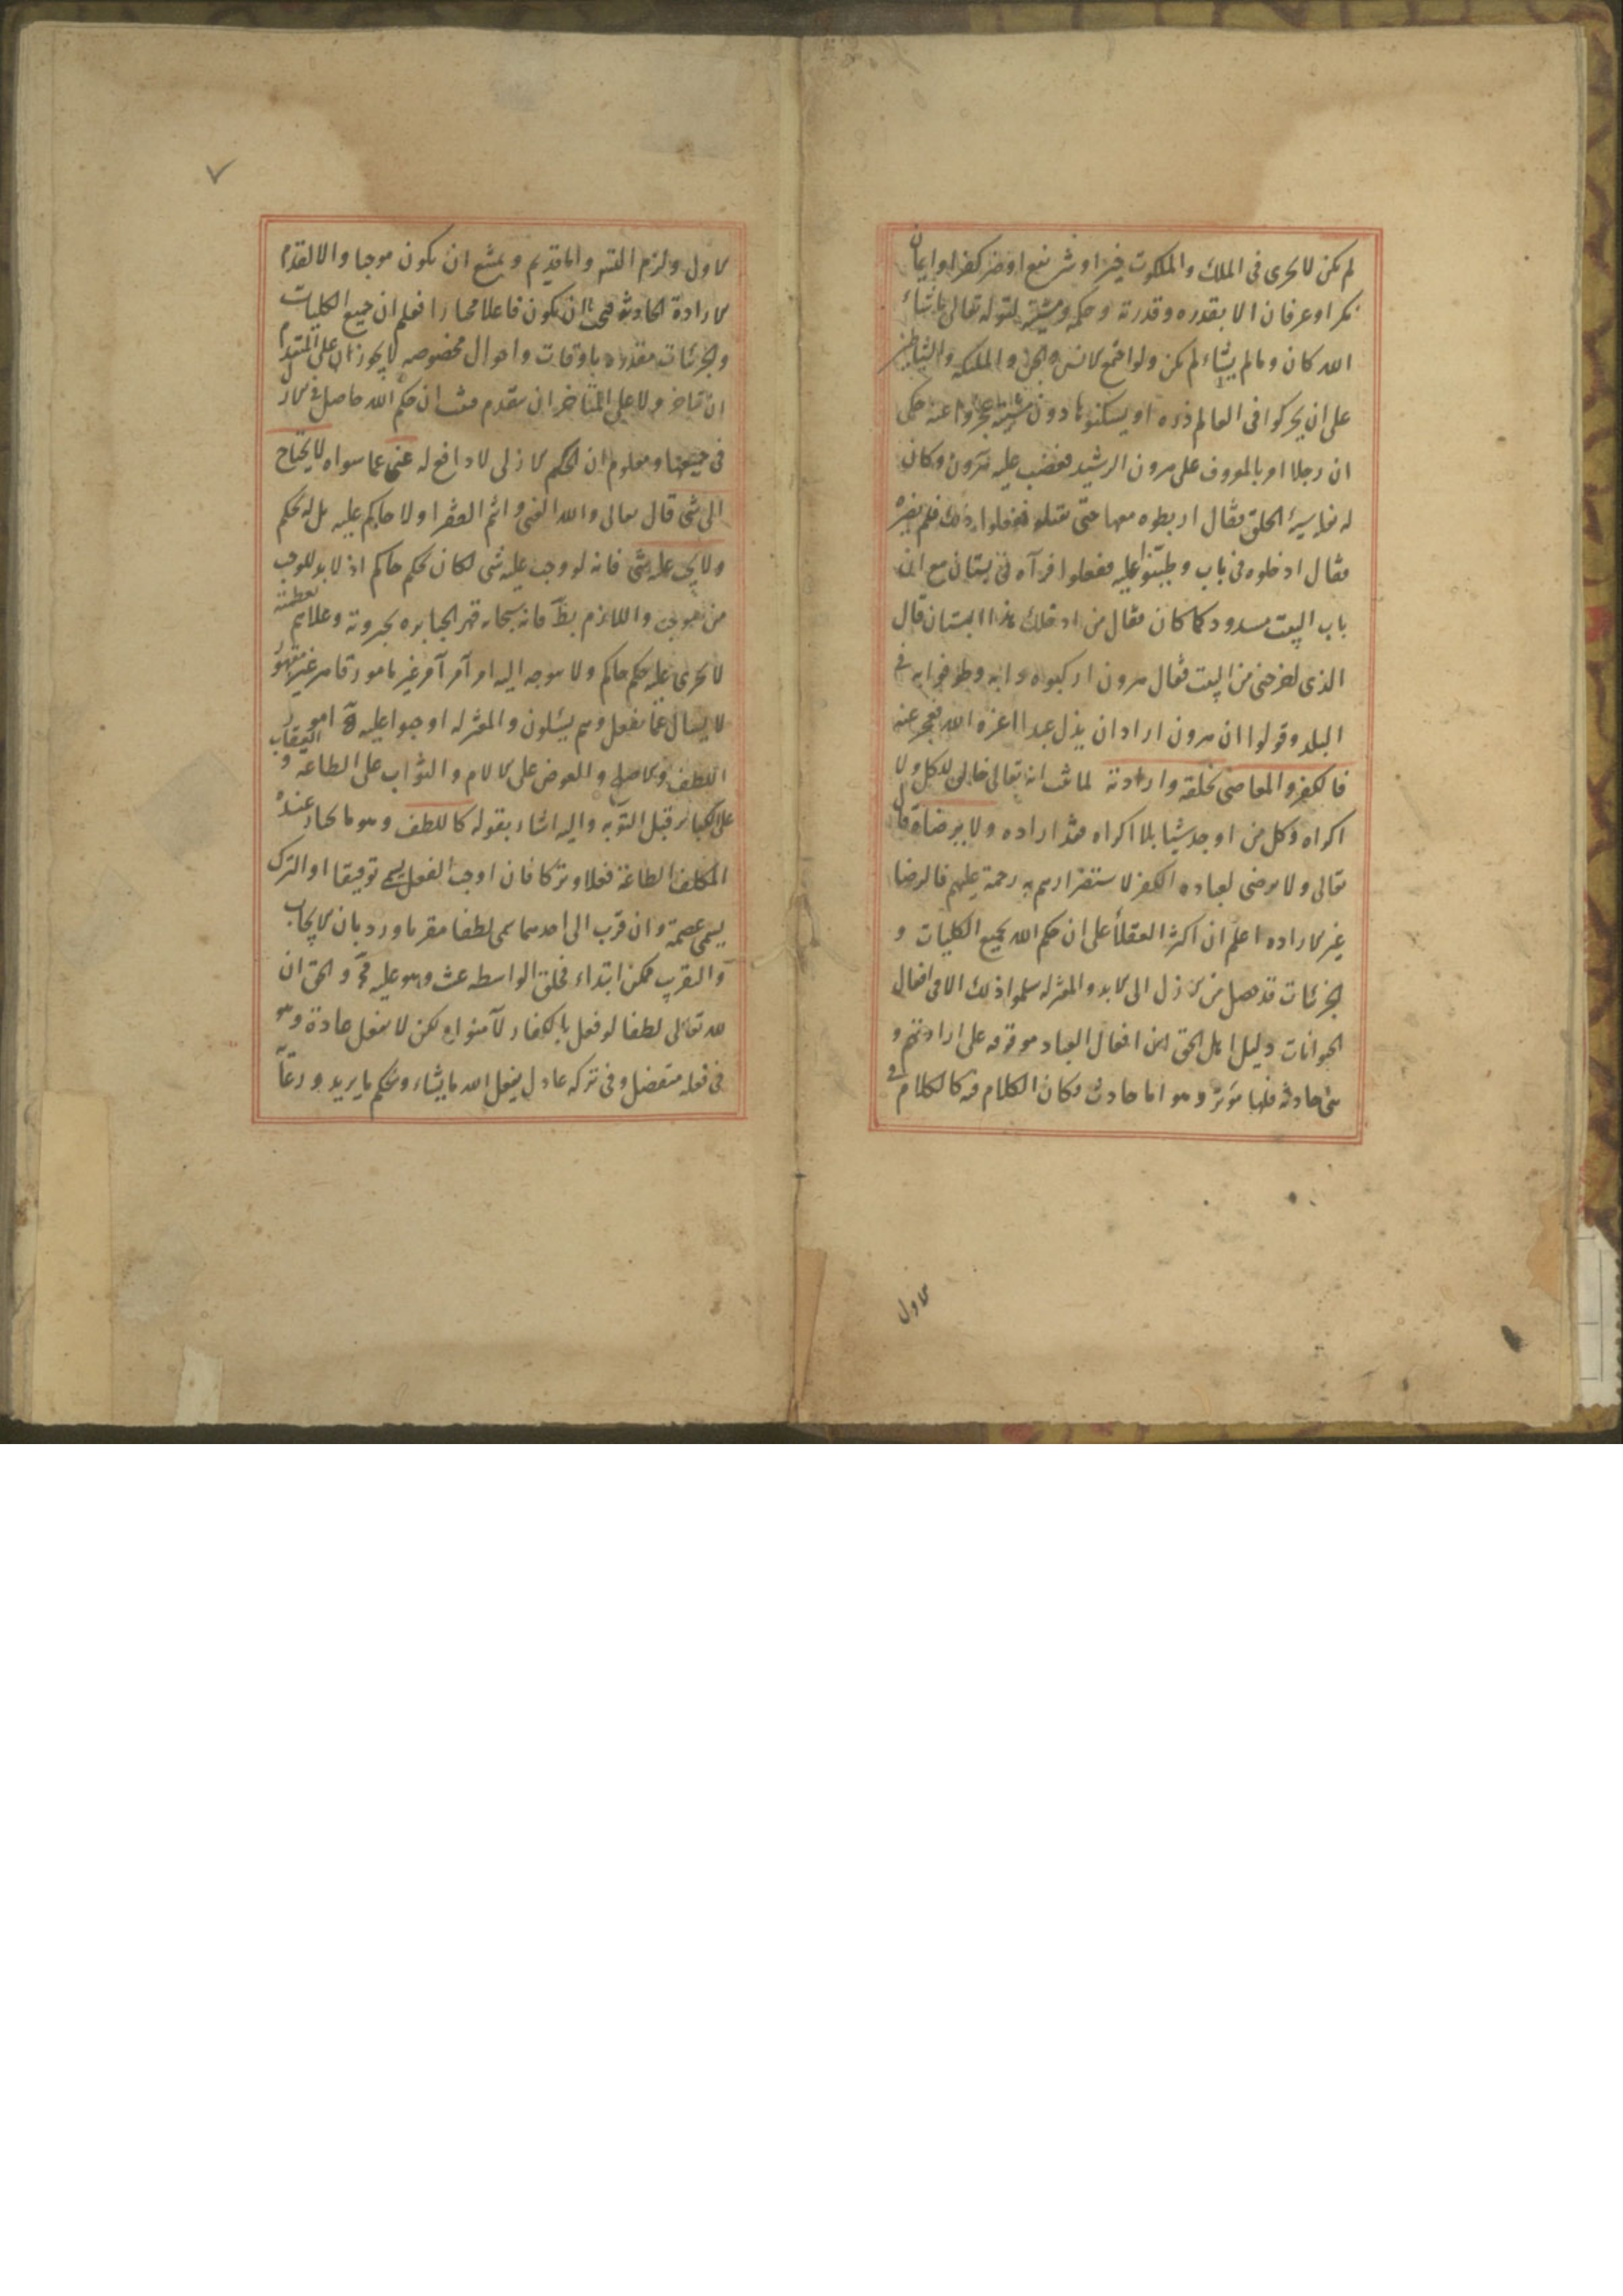 لم يكن لا يجرى فى الملك والملكوت خيرا وشر نفع او ضر كفر او ايمان
نكر او عرفان الا بقدره وقدرته وحكمه ومشيته لقوله تعالى ماشاء
الله كان وما لم يشاء لم يكن ولو اجتمع الانس والجن والملئكه والشياطين
على ان يحركوا فى العالم ذره او يسكنوها دون مشيته عجزوا عنه حكى
ان رجلا امر بالمعروف على هرون الرشيد فغضب عليه هرون وكان
له بغله سيئة الخلق فقال اربطوه معها حتى تقتله ففعلوا ذلك فلم يضره
فقال ادخلوه فى باب وطينوا عليه ففعلوا فرآه فى بستان مع ان
باب البيت مسدود كما كان فقال من ادخلك هذا البستان قال
الذى اخرجنى من البيت فقال هرون اركبوه دابه وطوفوا به فى
البلد وقولوا ان هرون اراد ان يذل عبدا اعزه الله فعجز عنه
فالكفر والمعاصى بخلقه وارادته لما ثبت انه تعالى خالق للكل ولا
اكراه وكل من اوجد شيئا بلا اكراه فقد اراده ولا برضاه قال
تعالى ولا يرضى لعباده الكفر لاستضرارهم به رحمة عليهم فالرضا
غير الاراده اعلم ان اكثر العقلأ على ان حكم الله بجميع الكليات و
الجزئيات قد حصل من الازل الى الابد والمعتزله سلموا ذلك الا فى افعال
الحيوانات دليل اهل الحق ان افعال العباد موقوفه على ارادتهم و
هى حادثه فلها مؤثر وهو اما حادث وكان الكلام فيه كالكلام فى
الاول
الاول ولزم التسـ واما قديم ويمتنع ان يكون موجبا والا لقدم
الارادة الحادثه فتعين ان يكون فاعلا مختارا فعلم ان جميع الكليات
والجزئيات مقدره باوقات واحوال مخصوصه لا يجوز ان على المتقدم
ان يتاخر ولا على المتأخر ان يتقدم فثبت ان حكم الله حاصل فى الازل
فى جميعها ومعلوم ان الحكم الازلى لا دافع له غنى عما سواه لا يحتاج
الى شى قال تعالى والله الغنى وانتم الفقرا ولا حاكم عليه بل له الحكم
ولا يجب عليه شى فانه لو وجب عليه شى لكان لحكم حاكم اذ لا بد للوجب
من موجب واللازم بط فانه سبحانه قهر الجبابره بجبروته وعلاهم بعظمته
لا يجرى عليه حكم حاكم ولا يتوجه اليه امر آمر آمر غير مامور قاهر غير مقهور
لا يسال عما يفعل وهم يسئلون والمعتزله اوجبوا عليه تع امور
اللطف والاصلح والعوض على الالام والثواب على الطاعه والعقاب
على الكبائر قبل التوبه واليه اشار بقوله كاللطف وهو ما يختار عنده
المكلف الطاعة فعلا وتركا فان اوجب الفعل يسمى توفيقا او الترك
يسمى عصمة وان قرب الى احدهما سمى لطفا مقربا ورد بان الايجاب
والتقريب ممكن ابتداء فخلق الواسطه عبث وهو عليه مح والحق ان
لله تعالى لطفا لو فعل بالكفار لآمنوا به لكن لا يفعل عادة وهو
فى فعله متفضل وفى تركه عادل يفعل الله ما يشاء ويحكم ما يريد